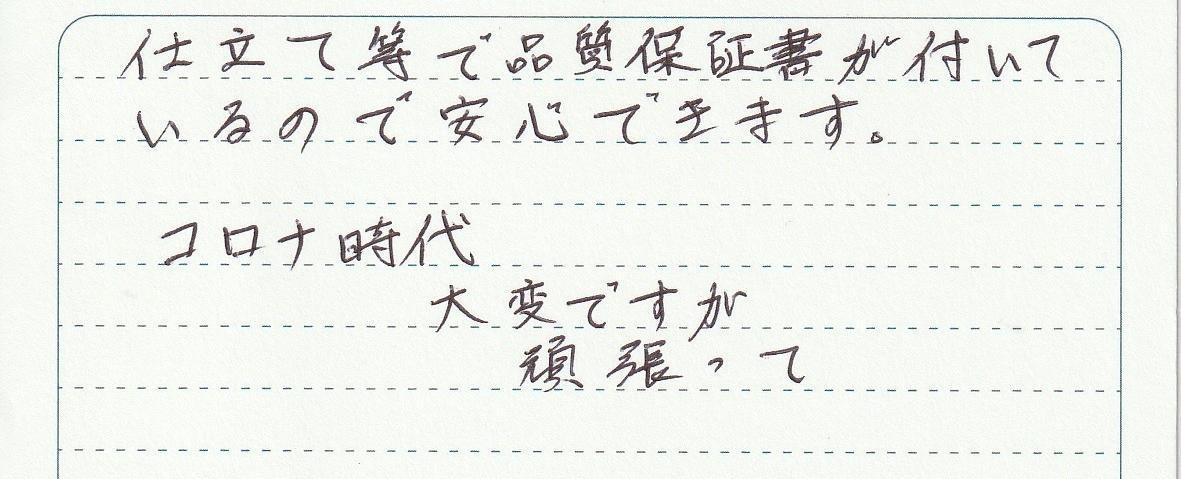 仕立て等で品質保証書が付いて
いるので安心できます。
コロナ時代
大変ですが
頑張って